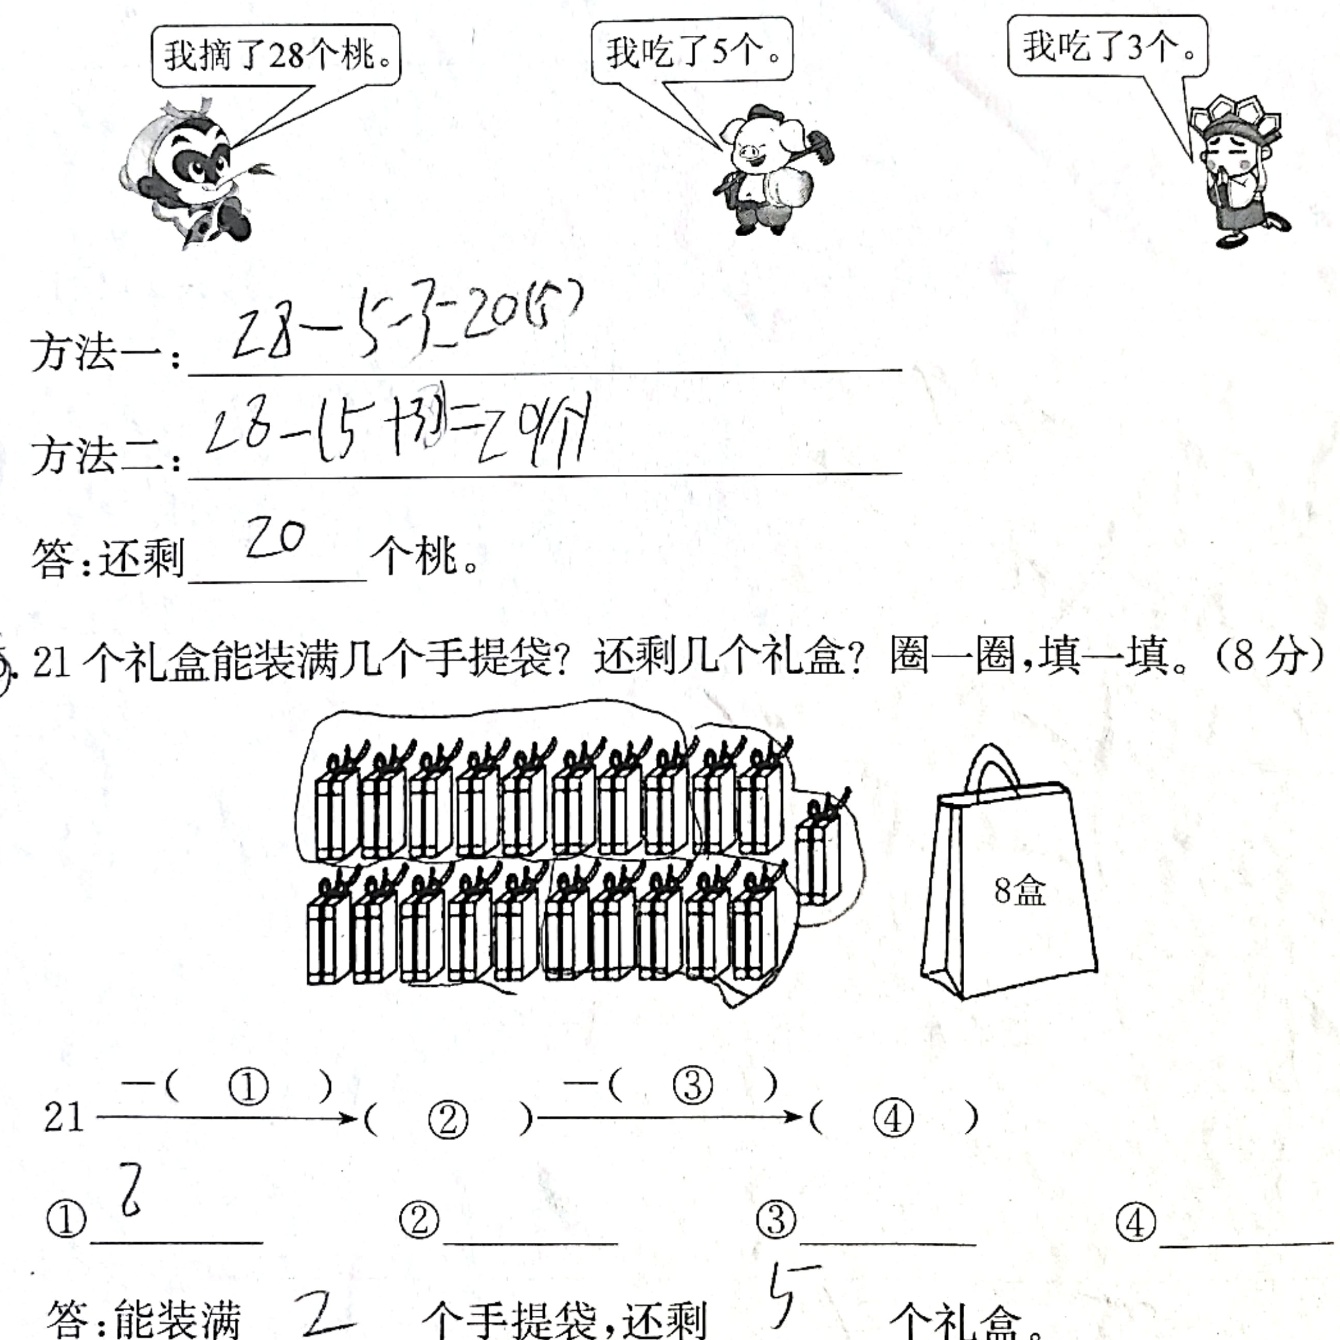 我摘了28个桃。 我吃了5个。 我吃了3个。
方法一：28-5-3=20(个)
方法二：28-(5+3)=20(个)
答：还剩 20 个桃。
21个礼盒能装满几个手提袋？还剩几个礼盒？圈一圈，填一填。(8分)
8盒
-( ① ) -( ③ )
21 ( ② ) ( ④ )
① 8 ② ③ ④
答：能装满 2 个手提袋，还剩 5 个礼盒。